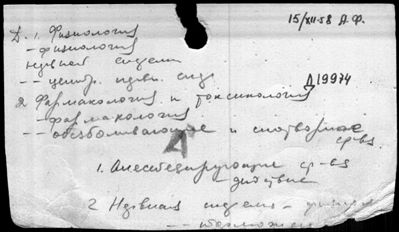 15/XII-58 А.Ф.
Д. 1. Физиология
-- физиология
нервной системы
-- центр. нервн. сист.
Д 19974
2. Фармакология и токсикология
-- фармакология
-- обезболивающие и снотворные
ср-ва
1. Анестезирующие ср-ва
-- действие
2 Нервная система --